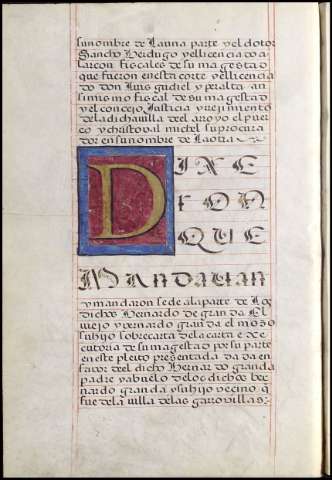 su nombre de La una parte y el dotor
Sancho Verdugo y el licenciado a
larcon fiscales de su magestad
que fueron en esta corte y el licencia
do don Luis gudiel y peralta an
simismo fiscal de su magestad
y el concejo Justicia y rejimiento
de la dicha villa del arroyo el puer
co y christoval michel su procura
dor en su nombre de La otra
DIXE
RON
QUE
MANDAUAN
y mandaron se de a la parte de Los
dichos Bernardo de granda El
viejo y vernardo granda el mozo
su hijo sobrecarta de la carta e xe
cutoria de su magestad por su parte
en este pleito presentada dada en
favor del dicho Bernardo granda
padre y abuelo de los dichos ber
nardo granda y su hijo vecino q
fue de la villa de las garrovillas